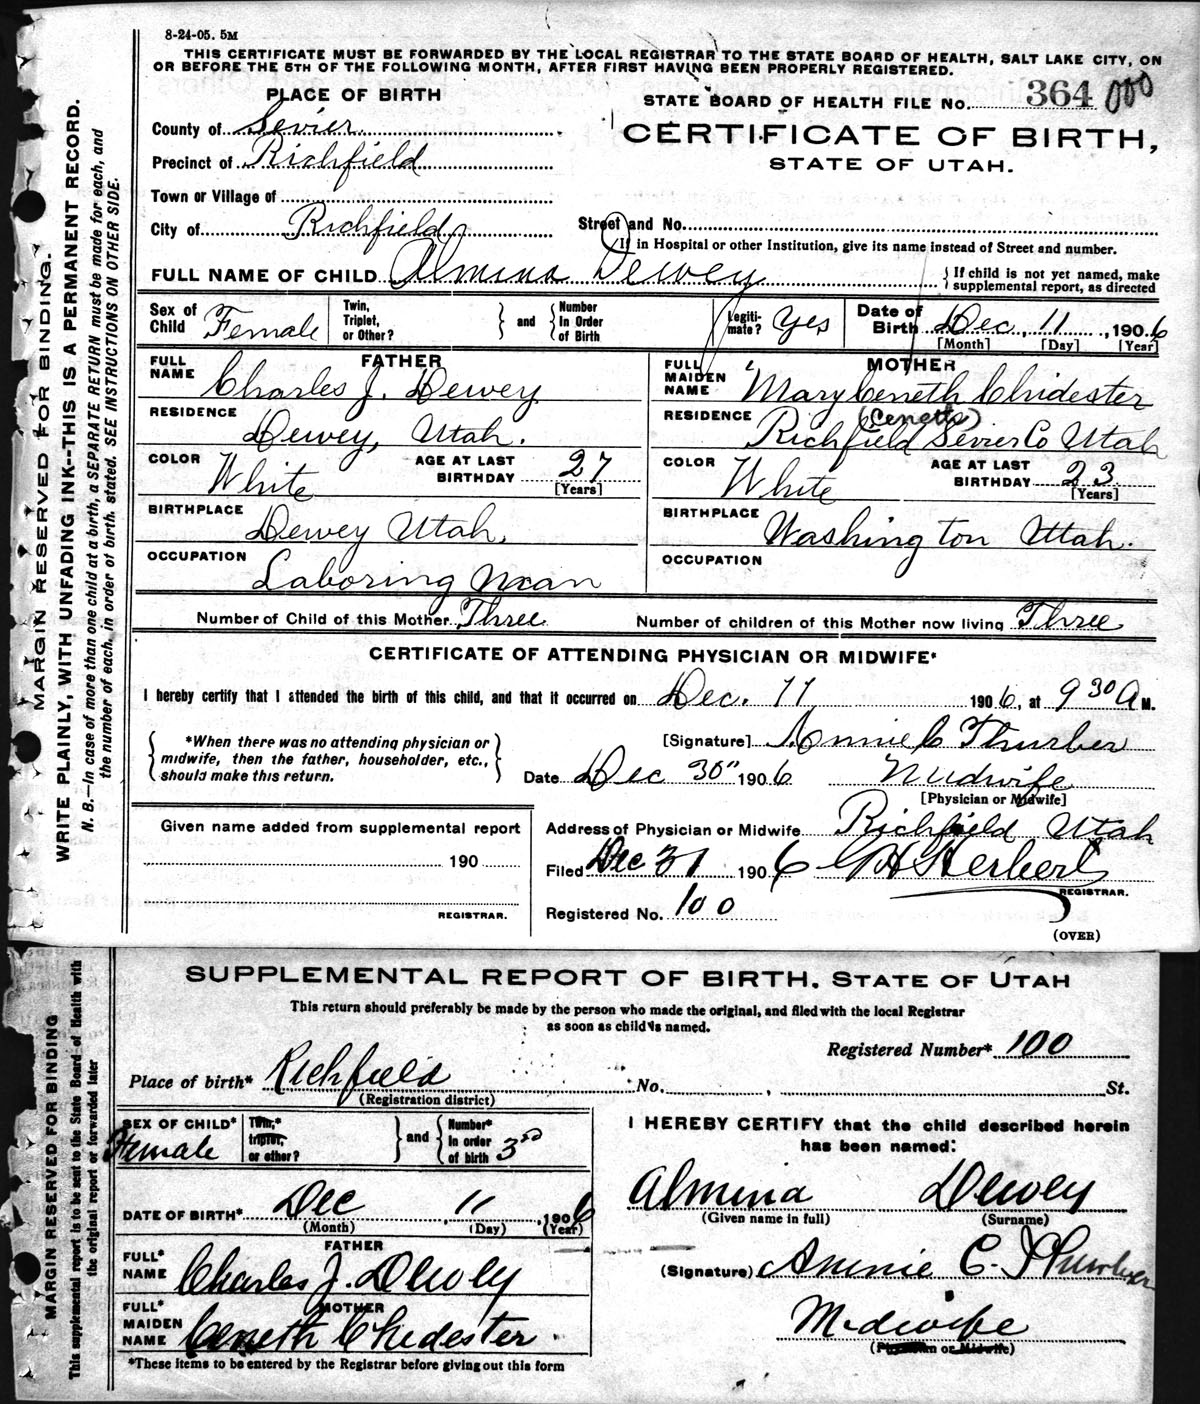 8-24-05. 5M
THIS CERTIFICATE MUST BE FORWARDED BY THE LOCAL REGISTRAR TO THE STATE BOARD OF HEALTH, SALT LAKE CITY, ON
OR BEFORE THE 5TH OF THE FOLLOWING MONTH, AFTER FIRST HAVING BEEN PROPERLY REGISTERED.
PLACE OF BIRTH
STATE BOARD OF HEALTH FILE No. 364 000
County of Sevier
CERTIFICATE OF BIRTH,
Precinct of Richfield
STATE OF UTAH.
Town or Village of
City of Richfield
Street and No.
(If in Hospital or other Institution, give its name instead of Street and number.
FULL NAME OF CHILD Almina Dewey
{ If child is not yet named, make
supplemental report, as directed
Sex of Child Female
Twin, Triplet, or Other? } and { Number In Order of Birth
Legiti-mate? Yes
Date of Birth Dec. 11, 1906
[Month] [Day] [Year]
FATHER
FULL NAME Charles J. Dewey
RESIDENCE Dewey, Utah.
COLOR White
AGE AT LAST BIRTHDAY 27
[Years]
BIRTHPLACE Dewey Utah.
OCCUPATION Laboring Man
MOTHER
FULL MAIDEN NAME Mary Ceneth Chidester
(Ceneth)
RESIDENCE Richfield Sevier Co Utah
COLOR White
AGE AT LAST BIRTHDAY 23
[Years]
BIRTHPLACE Washington Utah.
OCCUPATION
Number of Child of this Mother Three
Number of children of this Mother now living Three
CERTIFICATE OF ATTENDING PHYSICIAN OR MIDWIFE*
I hereby certify that I attended the birth of this child, and that it occurred on Dec. 11 1906, at 9 30 A M.
{ *When there was no attending physician or
midwife, then the father, householder, etc.,
should make this return. }
[Signature] Annie C Thurber
Date Dec 30" 1906 Midwife
[Physician or Midwife]
Given name added from supplemental report
190
REGISTRAR.
Address of Physician or Midwife Richfield Utah
Filed Dec 31 1906 Herbert
REGISTRAR.
Registered No. 100
(OVER)
MARGIN RESERVED FOR BINDING.
WRITE PLAINLY, WITH UNFADING INK--THIS IS A PERMANENT RECORD.
N. B.—In case of more than one child at a birth, a SEPARATE RETURN must be made for each, and
the number of each, in order of birth, stated. SEE INSTRUCTIONS ON OTHER SIDE.
SUPPLEMENTAL REPORT OF BIRTH, STATE OF UTAH
This return should preferably be made by the person who made the original, and filed with the local Registrar
as soon as child is named.
Registered Number* 100
Place of birth* Richfield No. , St.
(Registration district)
SEX OF CHILD* Female
Twin,* triplet, or other? } and { Number* In order of birth 3rd
DATE OF BIRTH* Dec 11, 1906
(Month) (Day) (Year)
FATHER
FULL* NAME Charles J. Dewey
MOTHER
FULL* MAIDEN NAME Ceneth Chidester
*These items to be entered by the Registrar before giving out this form
I HEREBY CERTIFY that the child described herein
has been named:
Almina Dewey
(Given name in full) (Surname)
(Signature) Annie C. Thurber
Midwife
(Physician or Midwife)
MARGIN RESERVED FOR BINDING
This supplemental report is to be sent to the State Board of Health with
the original report or forwarded later